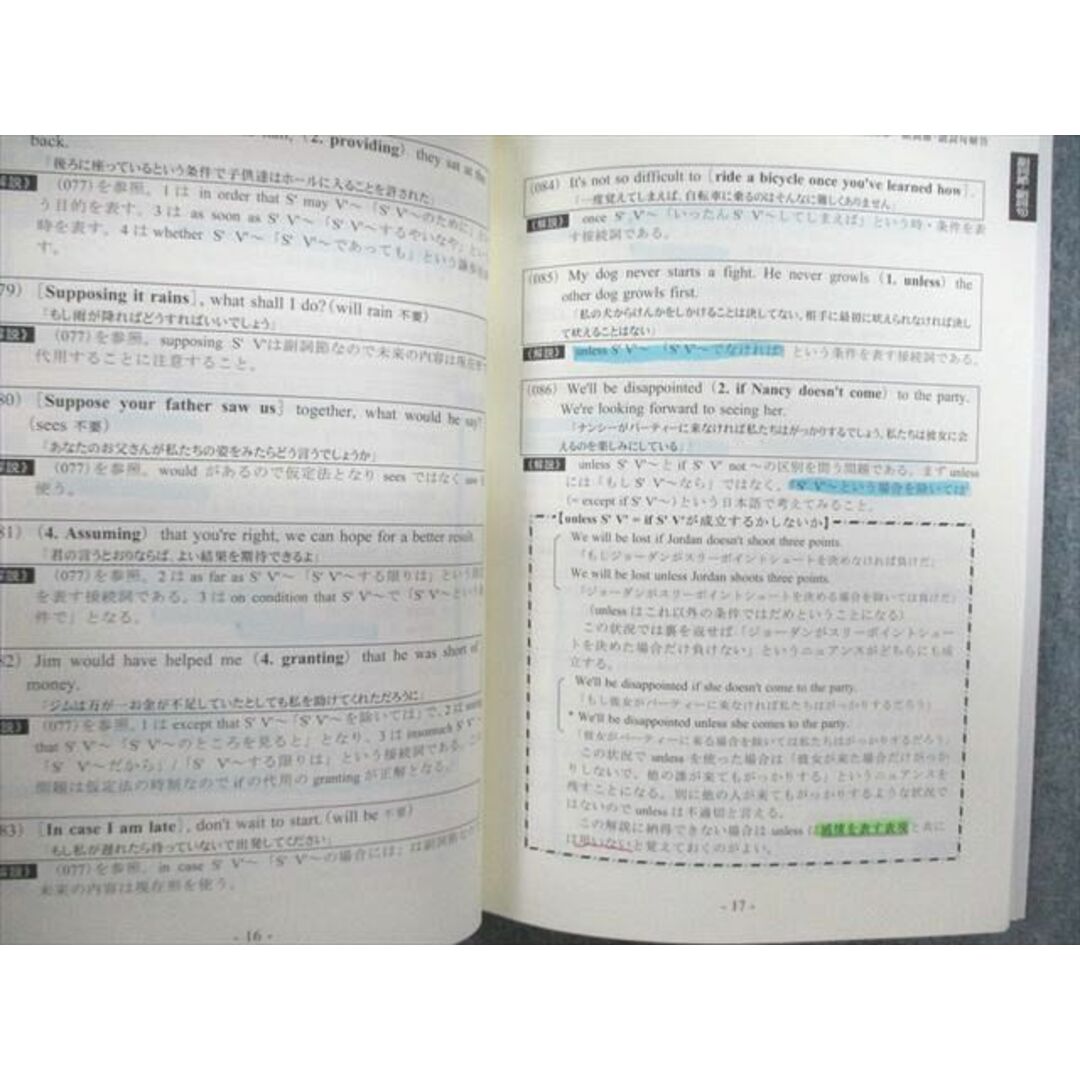 back.
(2. providing) they sat at the
「後ろに座っているという条件で子供達はホールに入ることを許された」
(077)を参照。1は in order that S' may V'~「S' V'~のために」とい
う目的を表す。3は as soon as S' V'~「S' V'~するやいなや」という
時を表す。4は whether S' V'~「S' V'~であっても」という譲歩を
す。
79) [Supposing it rains], what shall I do? (will rain 不要)
「もし雨が降ればどうすればいいでしょう」
(077)を参照。supposing S' V'は副詞節なので未来の内容は現在
代用することに注意すること。
80) [Suppose your father saw us] together, what would he say?
(sees 不要)
「あなたのお父さんが私たちの姿をみたらどう言うでしょうか」
(077)を参照。would があるので仮定法となり sees ではなく
使う。
81) (4. Assuming) that you're right, we can hope for a better result.
「君の言うとおりならば、よい結果を期待できるよ」
(077)を参照。2は as far as S' V'~「S' V'~する限りは」という
を表す接続詞である。3は on condition that S' V'~で「S' V'~という
件で」となる。
82) Jim would have helped me (4. granting) that he was short of
money.
「ジムは万が一お金が不足していたとしても私を助けてくれただろうに」
(077)を参照。1は except that S' V'~「S' V'~を除いては」で、2は
that S' V'~「S' V'~のところを見ると」となり、3は insomuch S' V'~
「S' V'~だから」/「S' V'~する限りは」という接続詞である。
問題は仮定法の時制なので if の代用の granting が正解となる。
83) [In case I am late], don't wait to start. (will be 不要)
「もし私が遅れたら待っていないで出発してください」
(077)を参照。in case S' V'~「S' V'~の場合には」は副詞節
未来の内容は現在形を使う。
- 16 -
(084) It's not so difficult to [ride a bicycle once you've learned how].
「一度覚えてしまえば、自転車に乗るのはそんなに難しくありません」
《解説》 once S' V'~「いったん S' V'~してしまえば」という時・条件を表
す接続詞である。
(085) My dog never starts a fight. He never growls (1. unless) the
other dog growls first.
「私の犬からけんかをしかけることは決してない。相手に最初に吠えられなければ決し
て吠えることはない」
《解説》 unless S' V'~「S' V'~でなければ」という条件を表す接続詞である。
(086) We'll be disappointed (2. if Nancy doesn't come) to the party.
We're looking forward to seeing her.
「ナンシーがパーティーに来なければ私たちはがっかりするでしょう。私たちは彼女に会
えるのを楽しみにしている」
《解説》 unless S' V'~と if S' V' not~の区別を問う問題である。まず unless
には「もし S' V'~なら」ではなく、「S' V'~という場合を除いては」
(= except if S' V'~)という日本語で考えてみること。
【unless S' V' = if S' V'が成立するかしないか】
We will be lost if Jordan doesn't shoot three points.
「もしジョーダンがスリーポイントシュートを決めなければ負けだ」
We will be lost unless Jordan shoots three points.
「ジョーダンがスリーポイントシュートを決める場合を除いては負けだ」
(unless はこれ以外の条件ではだめということになる)
この状況では裏を返せば「ジョーダンがスリーポイントシュー
トを決めた場合だけ負けない」というニュアンスがどちらにも成
立する。
We'll be disappointed if she doesn't come to the party.
「もし彼女がパーティーに来なければ私たちはがっかりするだろう」
* We'll be disappointed unless she comes to the party.
「彼女がパーティーに来る場合を除いては私たちはがっかりするだろう」
この状況で unless を使った場合は「彼女が来た場合だけがっか
りしないで、他の誰が来てもがっかりする」というニュアンスを
残すことになる。別に他の人が来てもがっかりするような状況で
はないので unless は不適切と言える。
この解説に納得できない場合は unless は感情を表す表現と共に
は用いないと覚えておくのがよい。
- 17 -